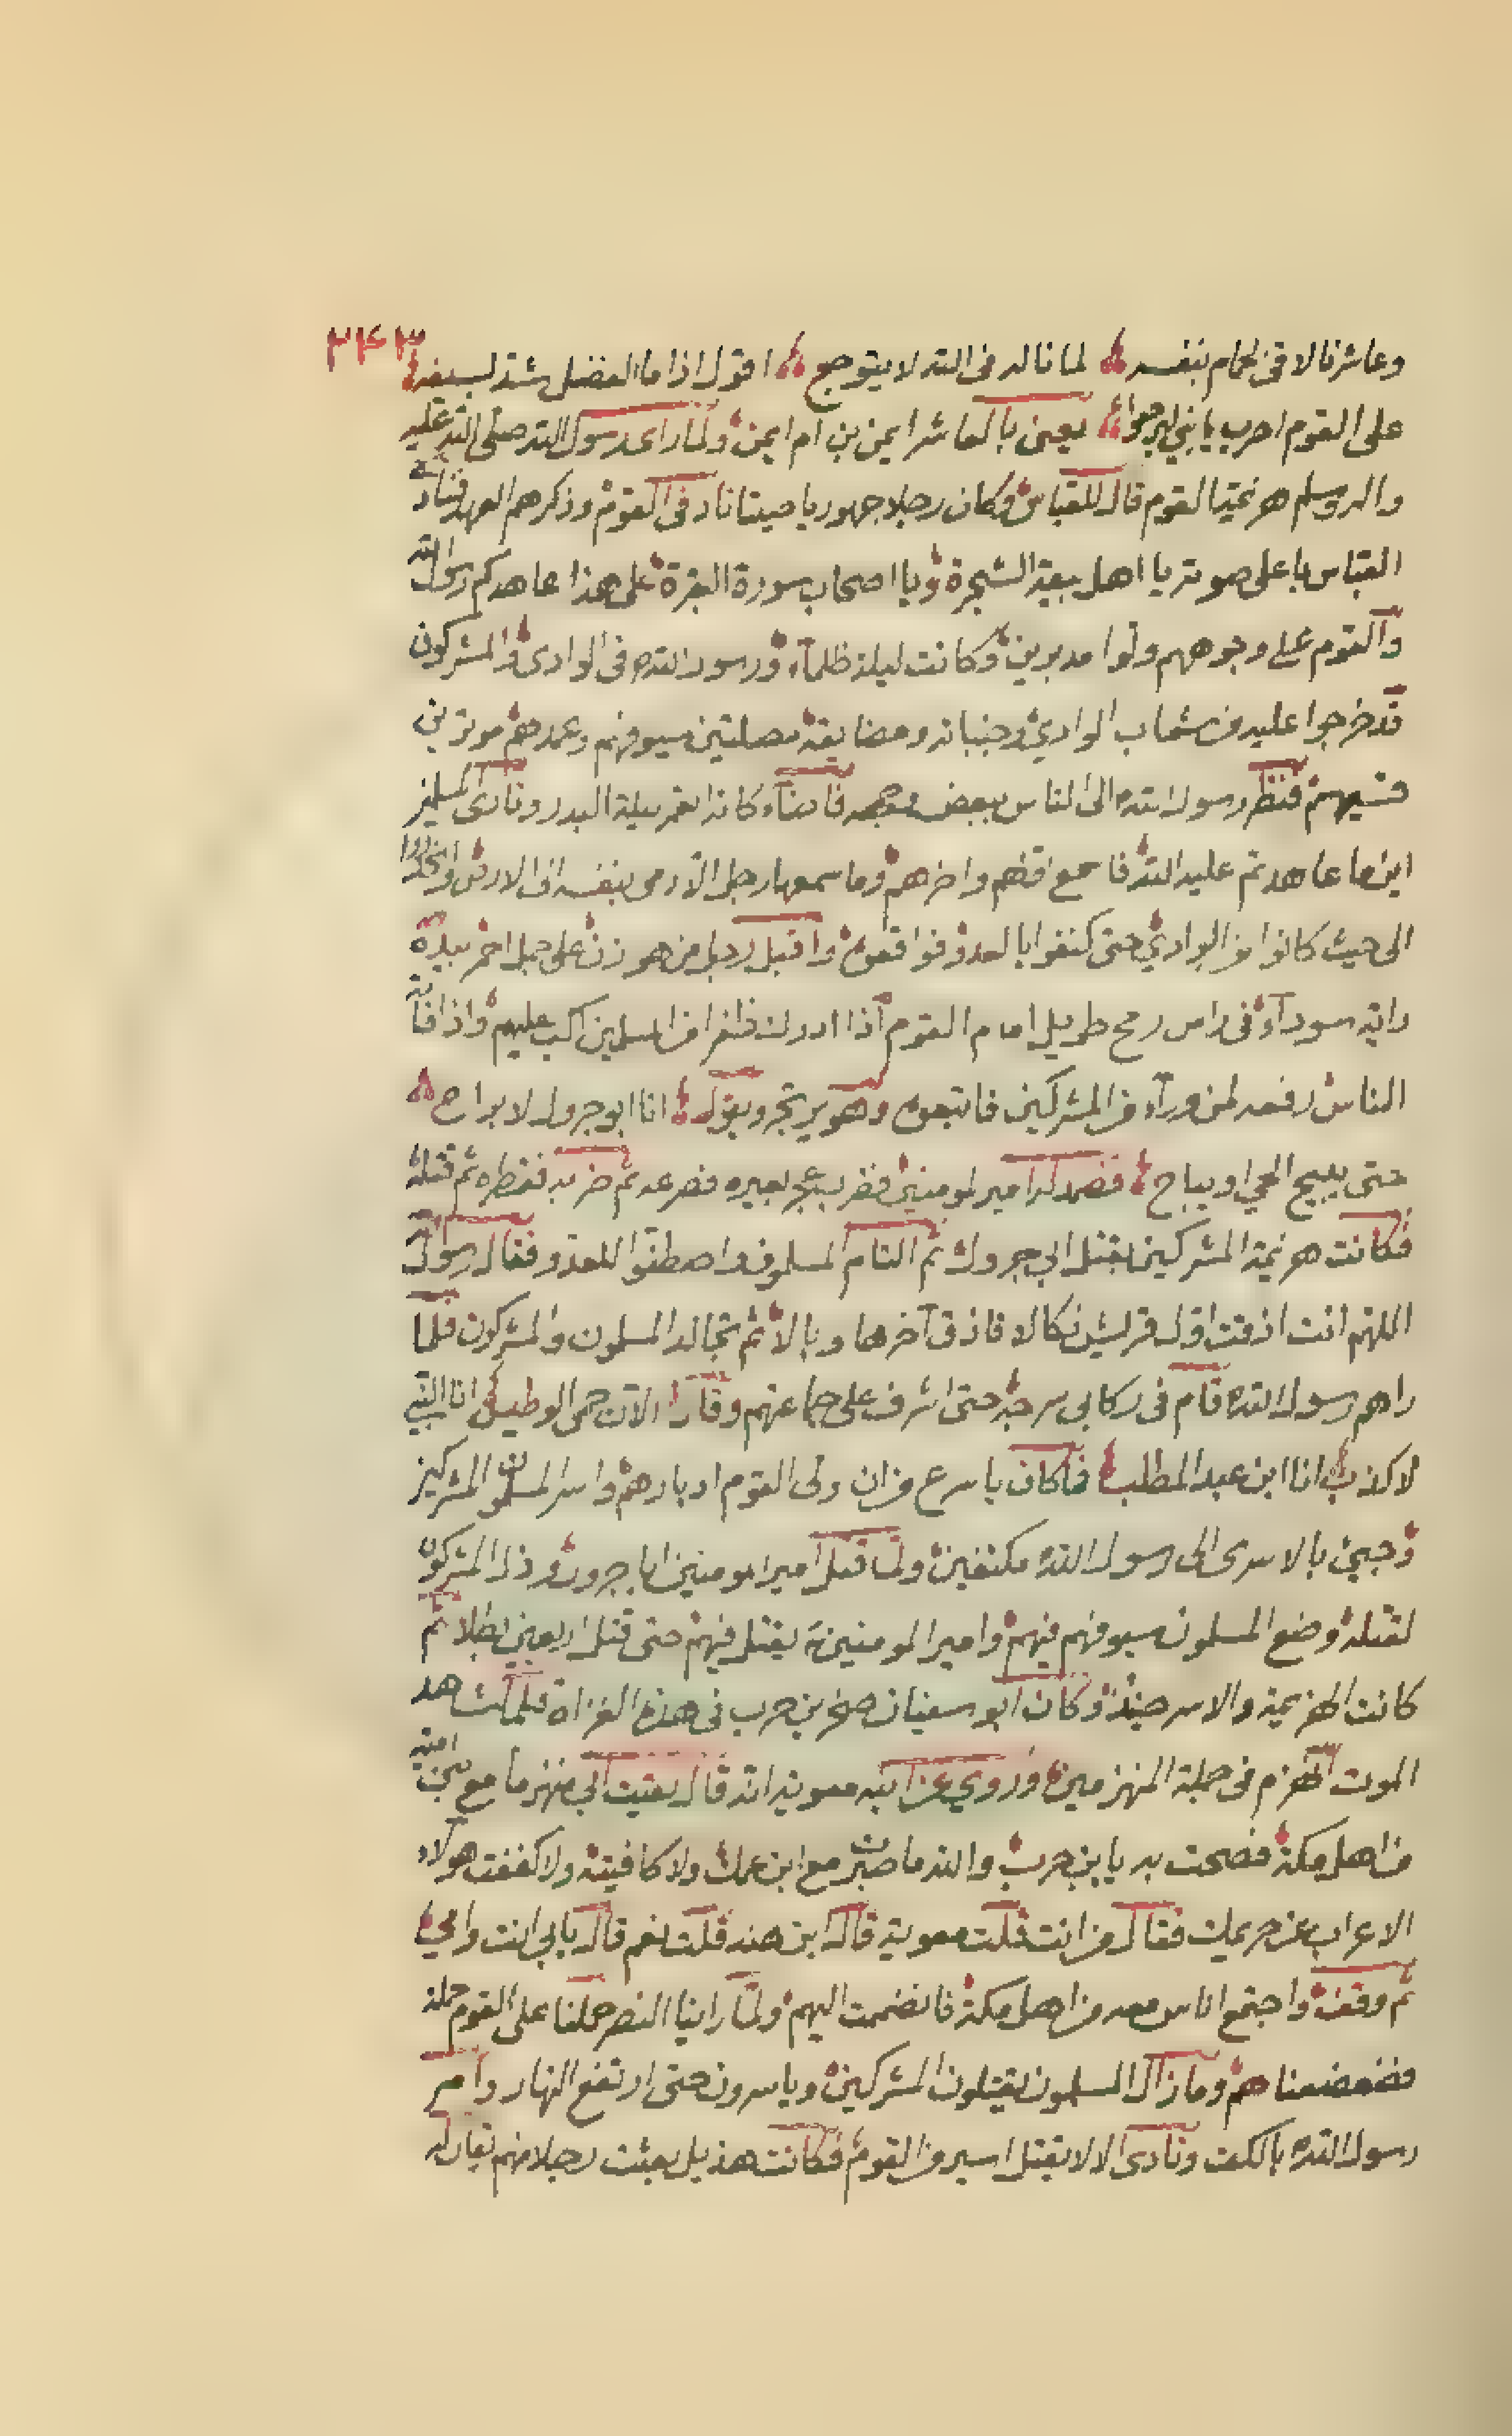 ۳۴۳
وعاشرنا لاقى الحمام بنفسه لما ناله فى الله لا يتوجع اقول اذا ما الفضل شد بسيفه
على القوم اخرى يا بني ليرجعوا يعني بالعاشر ايمن بن ام ايمن ولما راى رسول الله صلى الله عليه
واله وسلم هزيمة القوم قال للعباس وكان رجلا جهوريا صيتا ناد فى القوم وذكرهم العهد فنادى
العباس باعلى صوته يا اهل بيعة الشجرة ويا اصحاب سورة البقرة على هذا عاهدكم رسول الله
والقوم على وجوههم ولوا مدبرين وكانت ليلة ظلماء ورسول الله فى الوادى والمشركون
قد خرجوا عليه من شعاب الوادي وجنباته ومضايقة مصلتين سيوفهم وعمدهم موترين
قسيهم فنظر رسول الله الى الناس ببعض وجهه فاضاء كانه القمر ليلة البدر ونادى المسلمين
اين ما عاهدتم عليه الله فاسمع اولهم واخرهم وما سمعها رجل الا رمى بنفسه الى الارض وانحدروا
الى حيث كانوا من الوادي حتى كنفوا بالعدو فواقعوه واقبل رجل من هوازن على جمل احمر بيده
راية سوداء فى راس رمح طويل امام القوم اذا ادرك ظفرا من المسلمين اكب عليهم واذا فاته
الناس رفعه لمن وراه من المشركين فاتبعوه وهو يرتجز ويقول انا ابو جرول لا براح
حتى يبيح الحي او يباح فصمد له امير المومنين فضرب عجز بعيره فصرعه ثم ضربه فقطره ثم قتله
فكانت هزيمة المشركين بقتل ابي جرول ثم التام المسلمون واصطفوا للعدو فقال رسول الله
اللهم انت اذقت اول قريش نكالا فاذق آخرها وبالا ثم تجالد المسلمون والمشركون فلما
راهم رسول الله قام فى ركابي سرجه حتى اشرف على جماعتهم وقال الآن حمى الوطيس انا النبي
لا كذب انا ابن عبد المطلب فما كان باسرع من ان ولى القوم ادبارهم واسر المسلمون المشركين
وجيئ بالاسرى الى رسول الله مكتفين ولما قتل امير المومنين ابا جرول وخذل المشركون
لقتله وضع المسلمون سيوفهم فيهم وامير المومنين يقتل فيهم حتى قتل اربعين رجلا ثم
كانت الهزيمة والاسر حينئذ وكان ابو سفيان صخر بن حرب فى هذه الغزاة فلما شاهد
الموت انهزم فى جملة المنهزمين وروي عن ابنه معوية انه قال لقيت ابي منهزما مع بني امية
من اهل مكة فصحت به يا بن حرب والله ما صبرت مع ابن عمك ولا كافيته ولا كففت هولاء
الاعراب عن حريمك فقال من انت قلت معوية قال ابن هند قلت نعم قال بابي انت وامي
ثم وقف واجتمع اناس معه من اهل مكة فانضممت اليهم ولما راينا النصر حملنا على القوم حملة
فضعضعناهم وما زال المسلمون يقتلون المشركين وياسرون حتى ارتفع النهار وامر
رسول الله بالكف ونادى الا لا يقتل اسير من القوم فكانت هذيل بعثت رجلا منهم يقال له